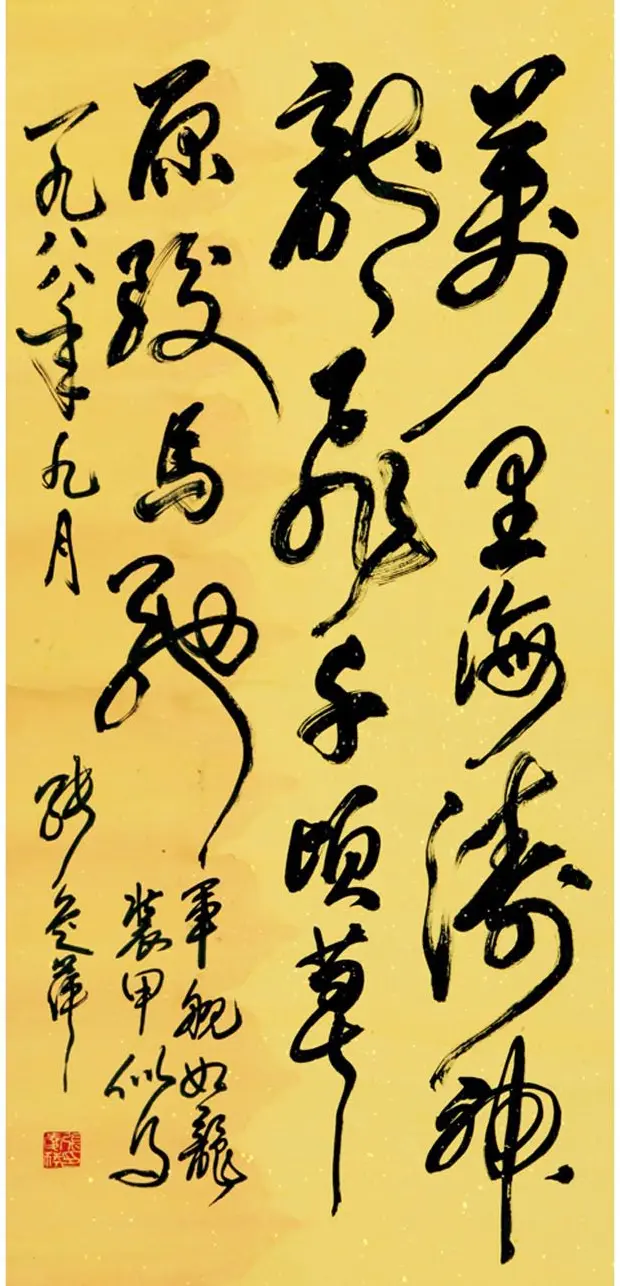 萬里海濤神
龍飛千頃草
原駿馬馳
軍舰如龍
裝甲似马
一九八八年九月
張愛萍